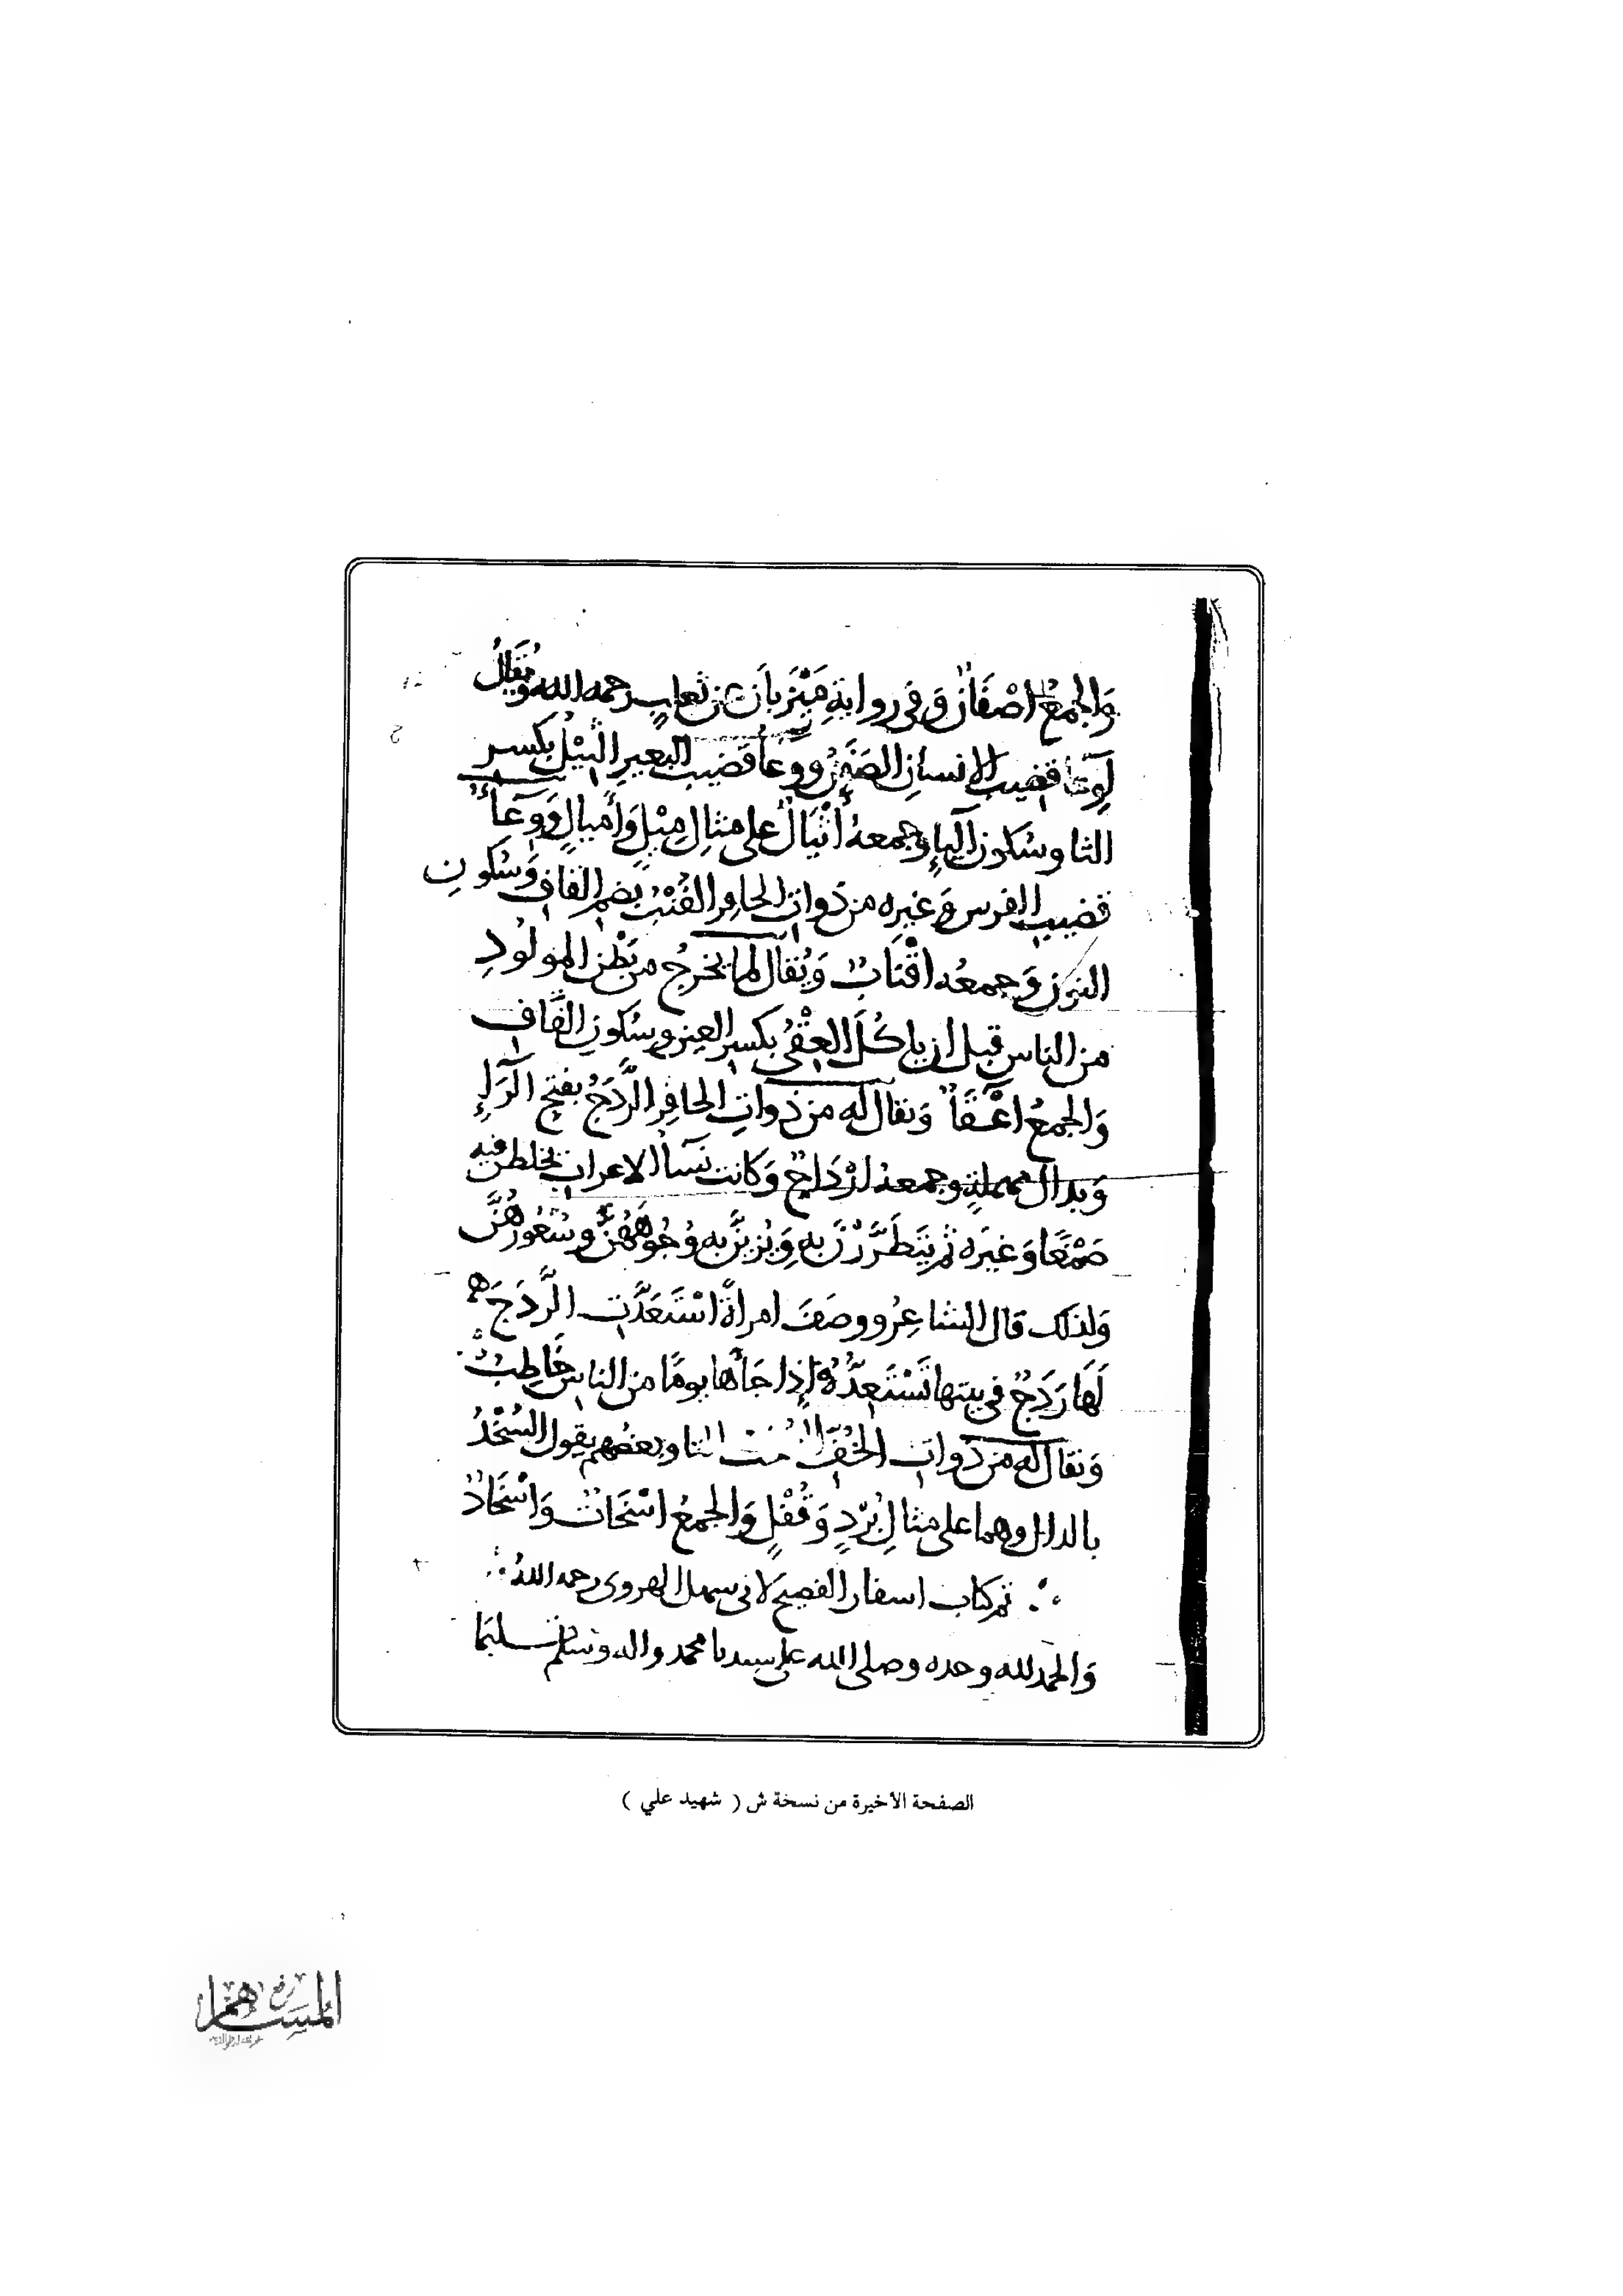 وَالجمعُ اصْفَانٌ وَفى روايةِ مَبْرَمَانَ عن ثعلبٍ رحمه الله ويُقَالُ
لِوِعَاءِ قضيبِ الانسانِ الصَّفَنُ وَوِعَاءُ قَضيبِ البعيرِ الثِّيْلُ بكسرِ
الثا وسُكونِ اليَاءِ وجمعهُ أَثْيَالٌ على مثالِ مِيْلٍ وَأَميالٍ وَوِعَآءُ
قضيبِ الفرسِ وَغيرِه من ذَواتِ الحافرِ القُنْبُ بضمِ القافِ وَسُكونِ
النونِ وَجمعُه اقْنَابٌ وَيُقال لما يَخرجُ من بَطْنِ المولودِ
من الناسِ قبل ان ياكُلَ العِقْيُ بكسرِ العينِ وسُكونِ القَافِ
وَالجمعُ اعْقَآءٌ وَيقال له من ذَواتِ الحافِرِ الرَّدَجُ بفتحِ الرَّاءِ
وَبدالٍ مهملةٍ وجمعهُ ارْدَاجٌ وَكانت نسَآءُ الاعرابِ يخلطن فيه
صَمْغًا وَغيرَه ثم يَتَطَرَّرْنَ بهِ وَيُزيِنَّ به وُجُوهَهُنَّ وشُعُورَهُنَّ
وَلذلك قال الشاعِرُ ووصَفَ امراةً اسْتَعَدَّتِ الرَّدَجَ
لَهَا رَدَجٌ فى بيتها تَسْتَعِدُّهُ إِذا جَآءَها يومًا من الناسِ خَاطِبُ
وَيقال له من ذواتِ الخُفِّ بالتا وبعضُهم يقول السُّخْدُ
بالدال وهما على مثالِ بُرْدٍ وَقُفْلٍ وَالجمعُ اسْخَاتٌ وَاسْخَادٌ
تم كتاب اسفار الفصيح لابى سهل الهروى رحمه اللهُ
وَالحمد لله وحده وصلى الله على سيدنا محمد واله وسلم تسليما
الصفحة الأخيرة من نسخة ش ( شهيد علي )